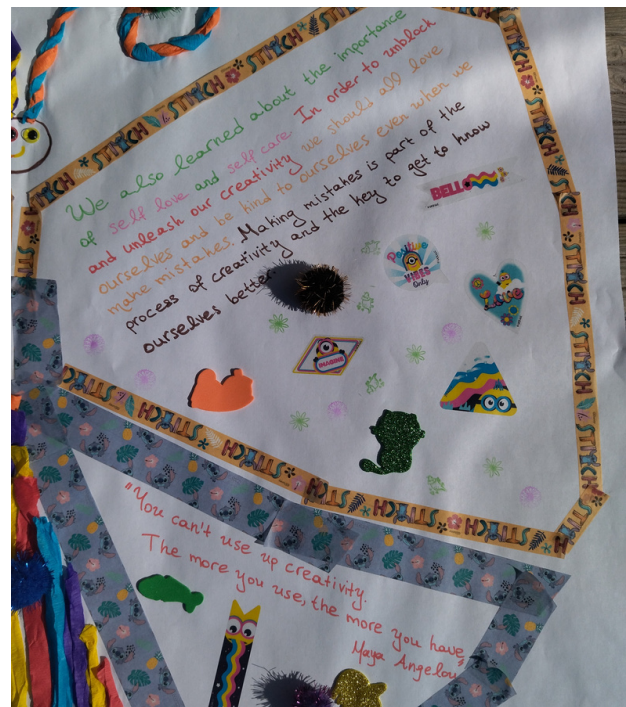 We also learned about the importance
of self love and self care In order to unblock
and unleash our creativity we should all love
ourselves and be kind to ourselves even when we
make mistakes. Making mistakes is part of the
process of creativity and the key to get to know
ourselves better.
BELLO
Positive
VIBES
Only
LOVE
IMAGINE
STITCH
"You can't use up creativity.
The more you use, the more you have"
Maya Angelou